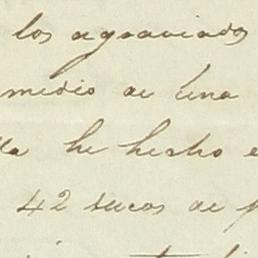 los agraviados
medio de una
he hecho e
42 sucos de p